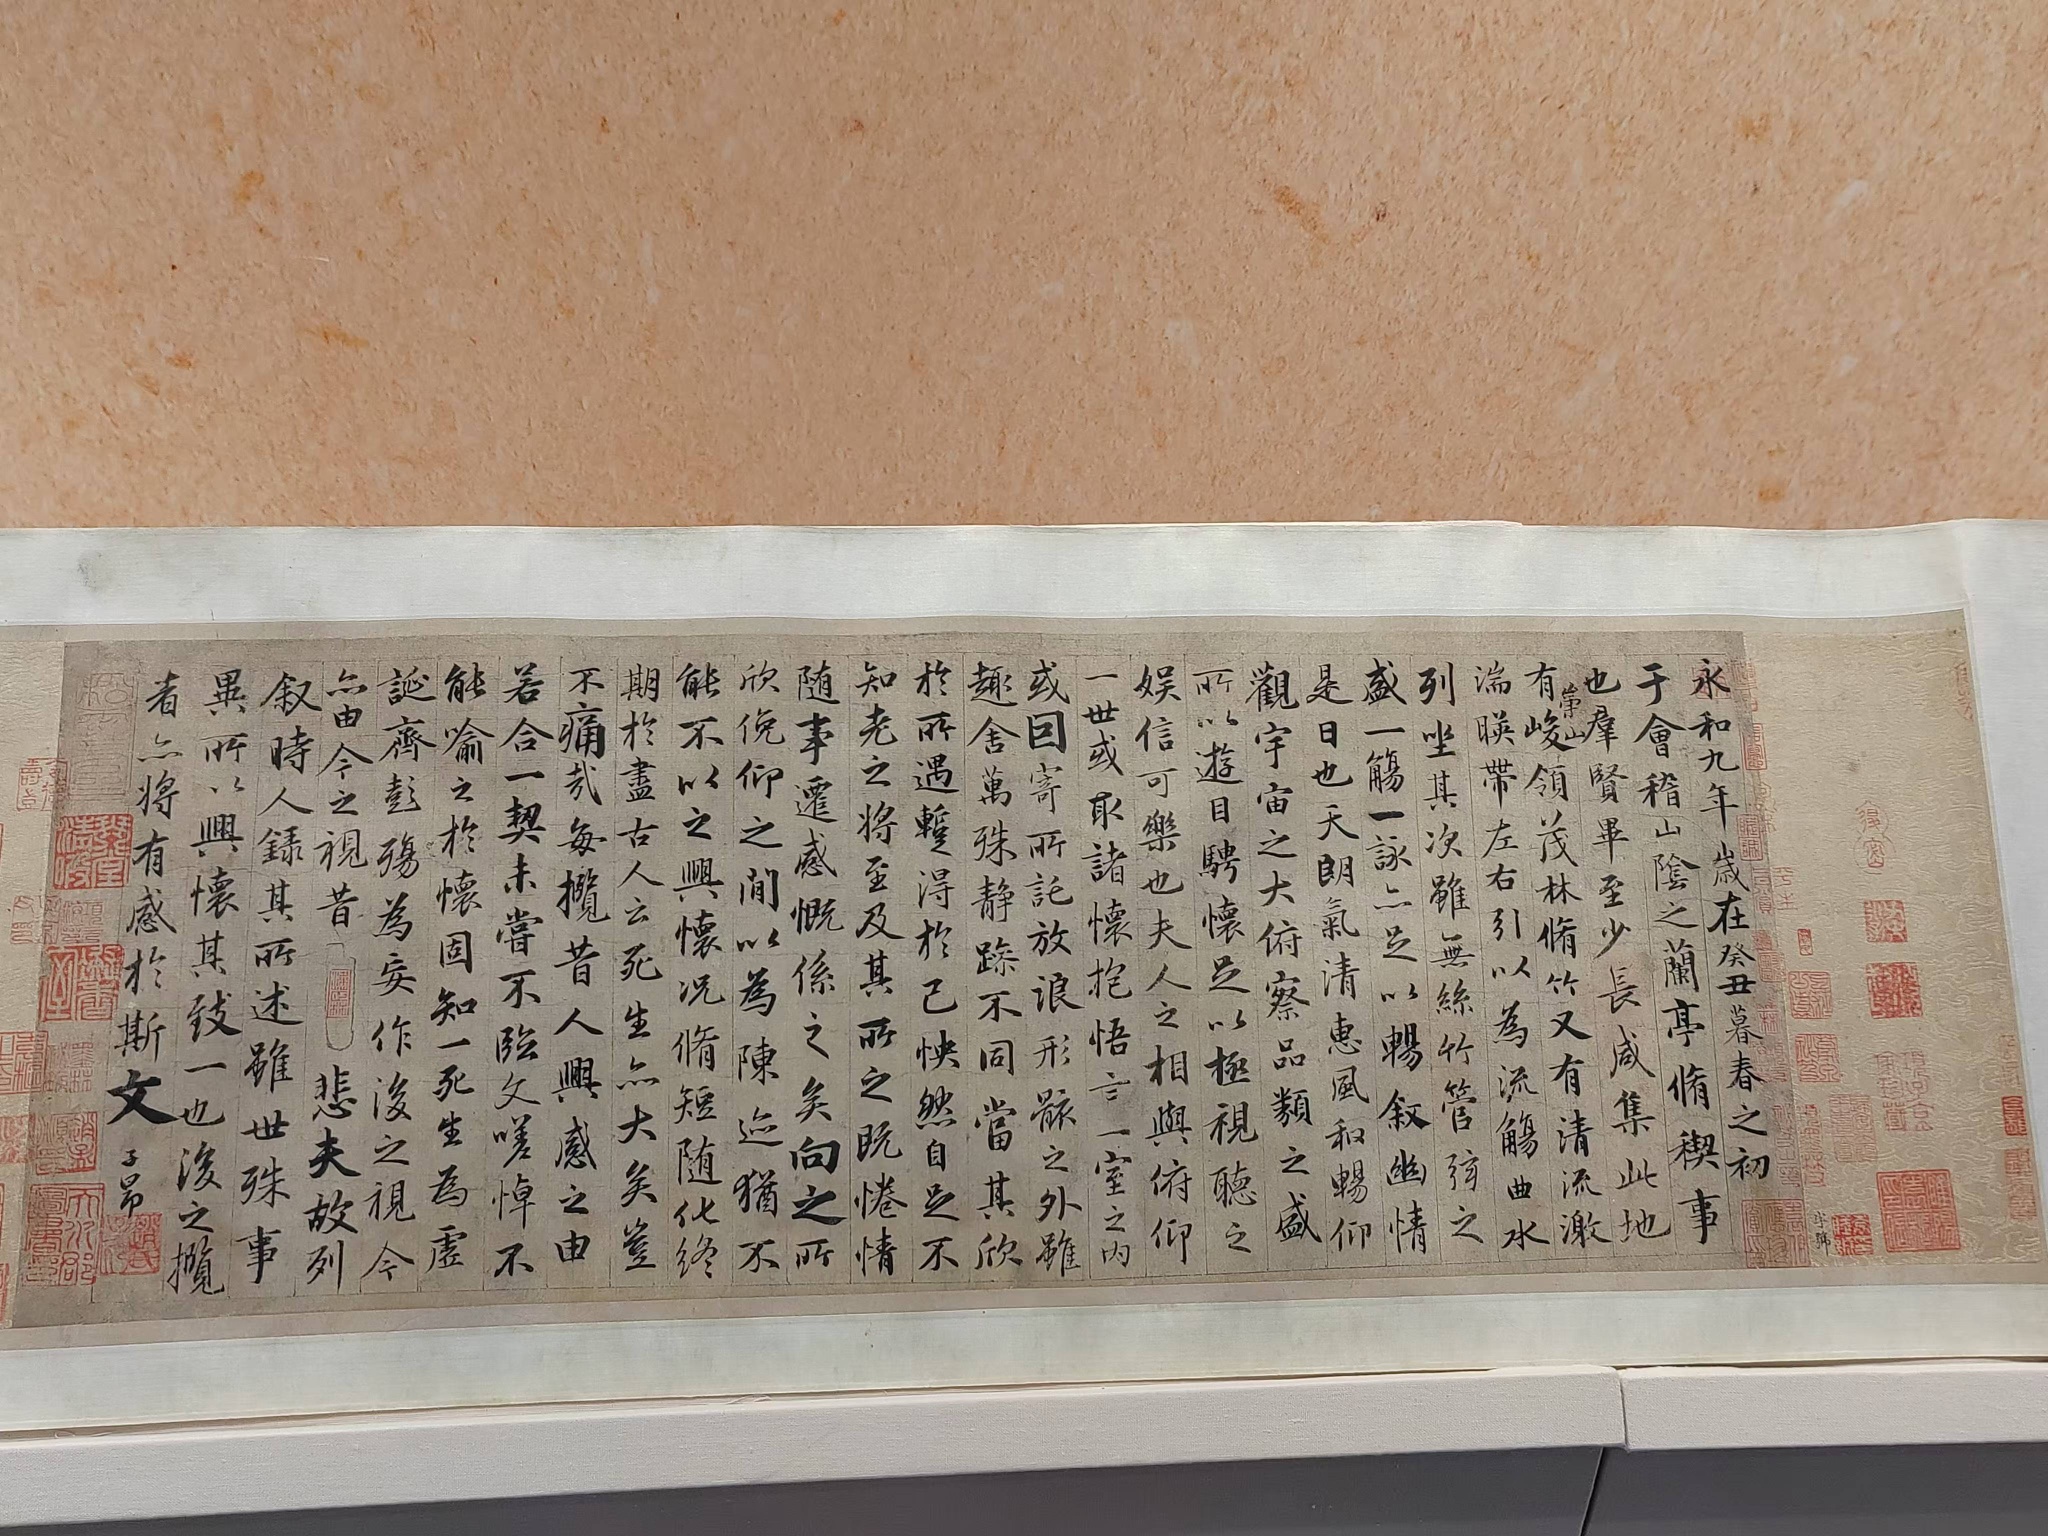 永和九年歲在癸丑暮春之初
于會稽山陰之蘭亭脩稧事
也羣賢畢至少長咸集此地
有崇山峻領茂林脩竹又有清流激
湍暎帶左右引以為流觴曲水
列坐其次雖無絲竹管弦之
盛一觴一詠亦足以暢叙幽情
是日也天朗氣清惠風和暢仰
觀宇宙之大俯察品類之盛
所以遊目騁懷足以極視聽之
娱信可樂也夫人之相與俯仰
一世或取諸懷抱悟言一室之内
或因寄所託放浪形骸之外雖
趣舍萬殊静躁不同當其欣
於所遇蹔得於己怏然自足不
知老之將至及其所之既惓情
随事遷感慨係之矣向之所
欣俛仰之閒以為陳迹猶不
能不以之興懷况脩短随化終
期於盡古人云死生亦大矣豈
不痛哉每攬昔人興感之由
若合一契未嘗不臨文嗟悼不
能喻之於懷固知一死生為虛
誕齊彭殤為妄作後之視今
亦由今之視昔悲夫故列
叙時人録其所述雖世殊事
異所以興懷其致一也後之攬
者亦將有感於斯文
子昂